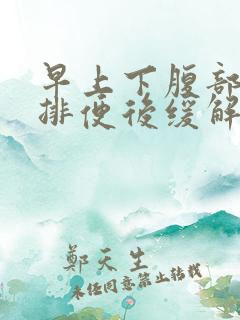 早上下腹部
排便後缓解
鄭天生
未经同意禁止转载